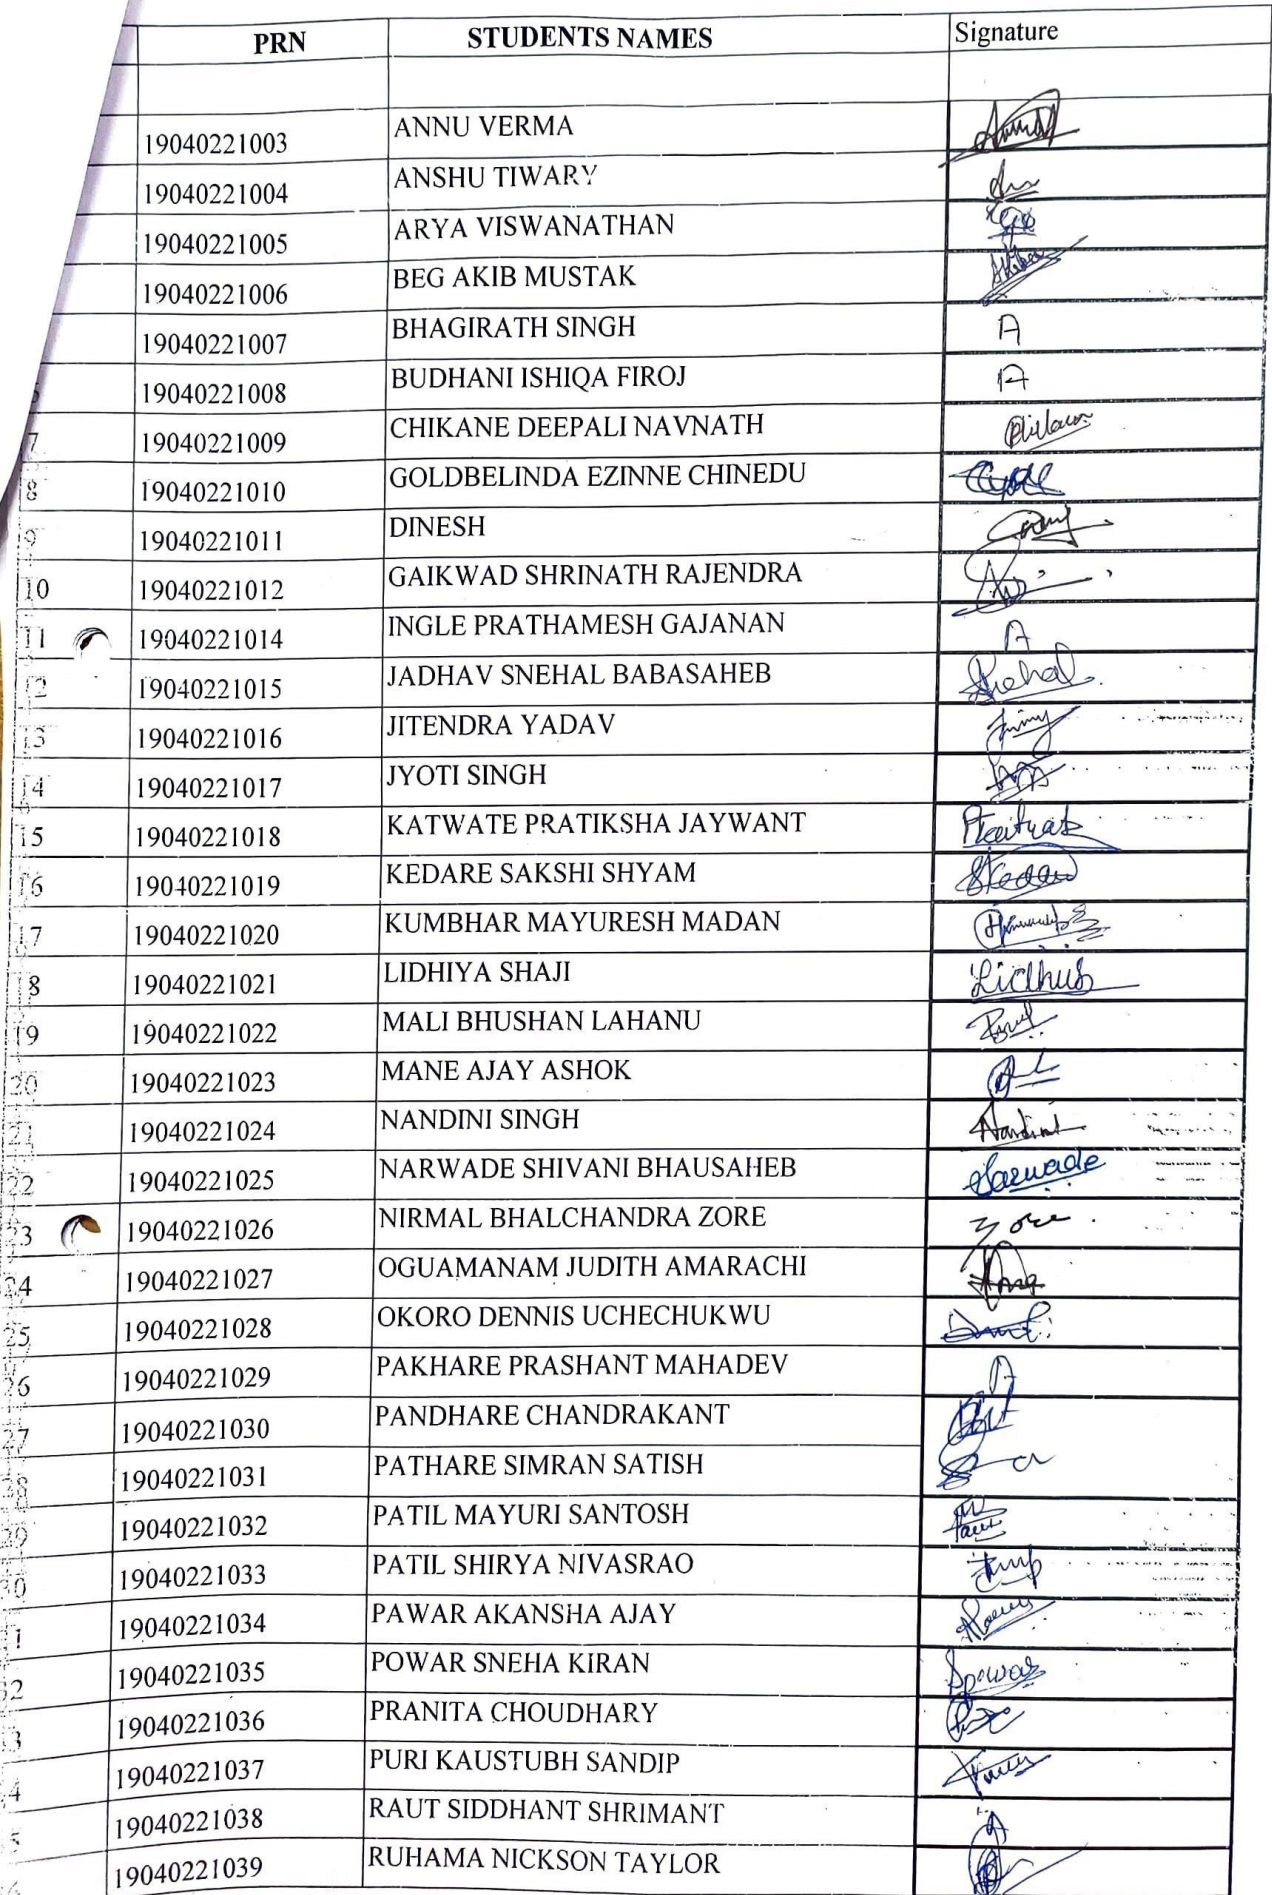 PRN STUDENTS NAMES Signature
19040221003 ANNU VERMA
19040221004 ANSHU TIWARY
19040221005 ARYA VISWANATHAN
19040221006 BEG AKIB MUSTAK
19040221007 BHAGIRATH SINGH A
19040221008 BUDHANI ISHIQA FIROJ A
7 19040221009 CHIKANE DEEPALI NAVNATH
8 19040221010 GOLDBELINDA EZINNE CHINEDU
9 19040221011 DINESH
10 19040221012 GAIKWAD SHRINATH RAJENDRA
11 19040221014 INGLE PRATHAMESH GAJANAN A
12 19040221015 JADHAV SNEHAL BABASAHEB Snehal
13 19040221016 JITENDRA YADAV
14 19040221017 JYOTI SINGH
15 19040221018 KATWATE PRATIKSHA JAYWANT
16 19040221019 KEDARE SAKSHI SHYAM
17 19040221020 KUMBHAR MAYURESH MADAN
18 19040221021 LIDHIYA SHAJI
19 19040221022 MALI BHUSHAN LAHANU
20 19040221023 MANE AJAY ASHOK
21 19040221024 NANDINI SINGH Nandini
22 19040221025 NARWADE SHIVANI BHAUSAHEB Narwade
23 19040221026 NIRMAL BHALCHANDRA ZORE Zore
24 19040221027 OGUAMANAM JUDITH AMARACHI
25 19040221028 OKORO DENNIS UCHECHUKWU
26 19040221029 PAKHARE PRASHANT MAHADEV A
27 19040221030 PANDHARE CHANDRAKANT
28 19040221031 PATHARE SIMRAN SATISH
29 19040221032 PATIL MAYURI SANTOSH
30 19040221033 PATIL SHIRYA NIVASRAO
1 19040221034 PAWAR AKANSHA AJAY
2 19040221035 POWAR SNEHA KIRAN Spowar
3 19040221036 PRANITA CHOUDHARY
4 19040221037 PURI KAUSTUBH SANDIP
5 19040221038 RAUT SIDDHANT SHRIMANT A
6 19040221039 RUHAMA NICKSON TAYLOR